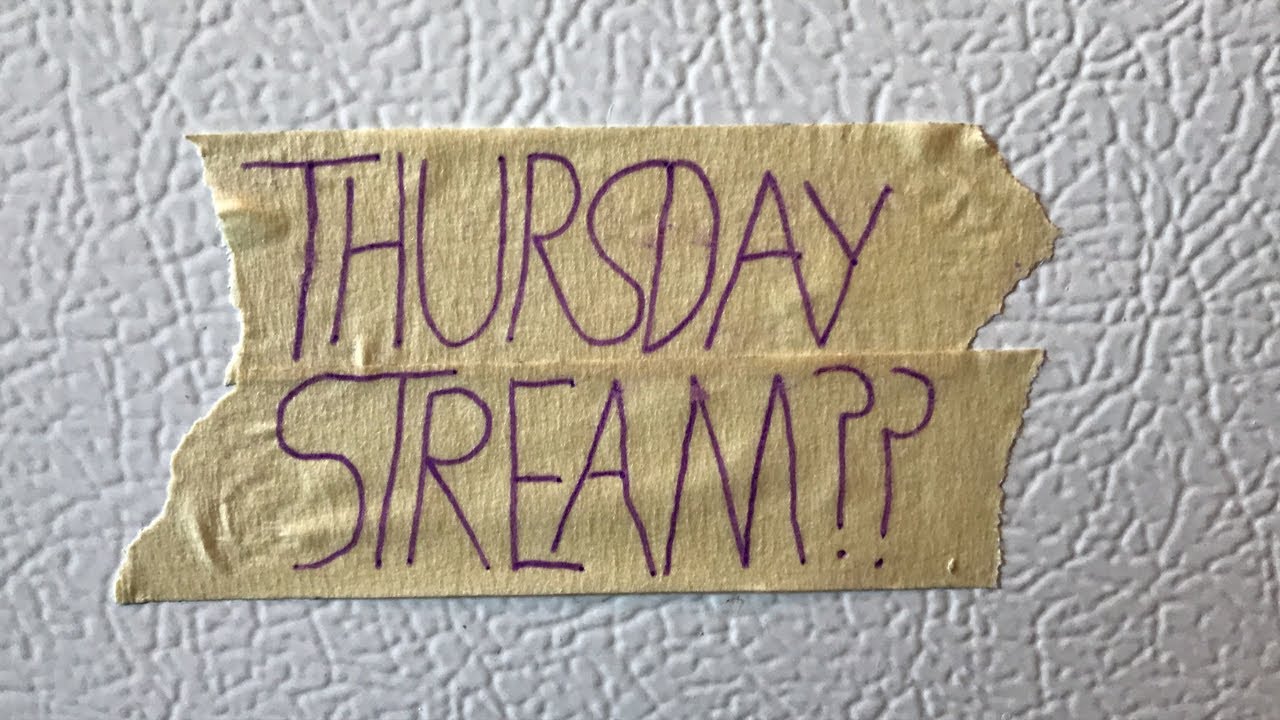 THURSDAY
STREAM??